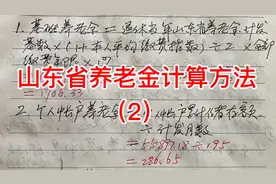 1. 基础养老金 = 退休当年山东省养老金计发
基数×(1+本人平均缴费指数)÷2×全部
缴费年限×1%
=1706.33
山东省养老金计算方法
(2)
2. 个人帐户养老金 = 个人帐户累计储存额
÷计发月数
=55897.18÷195
=286.65